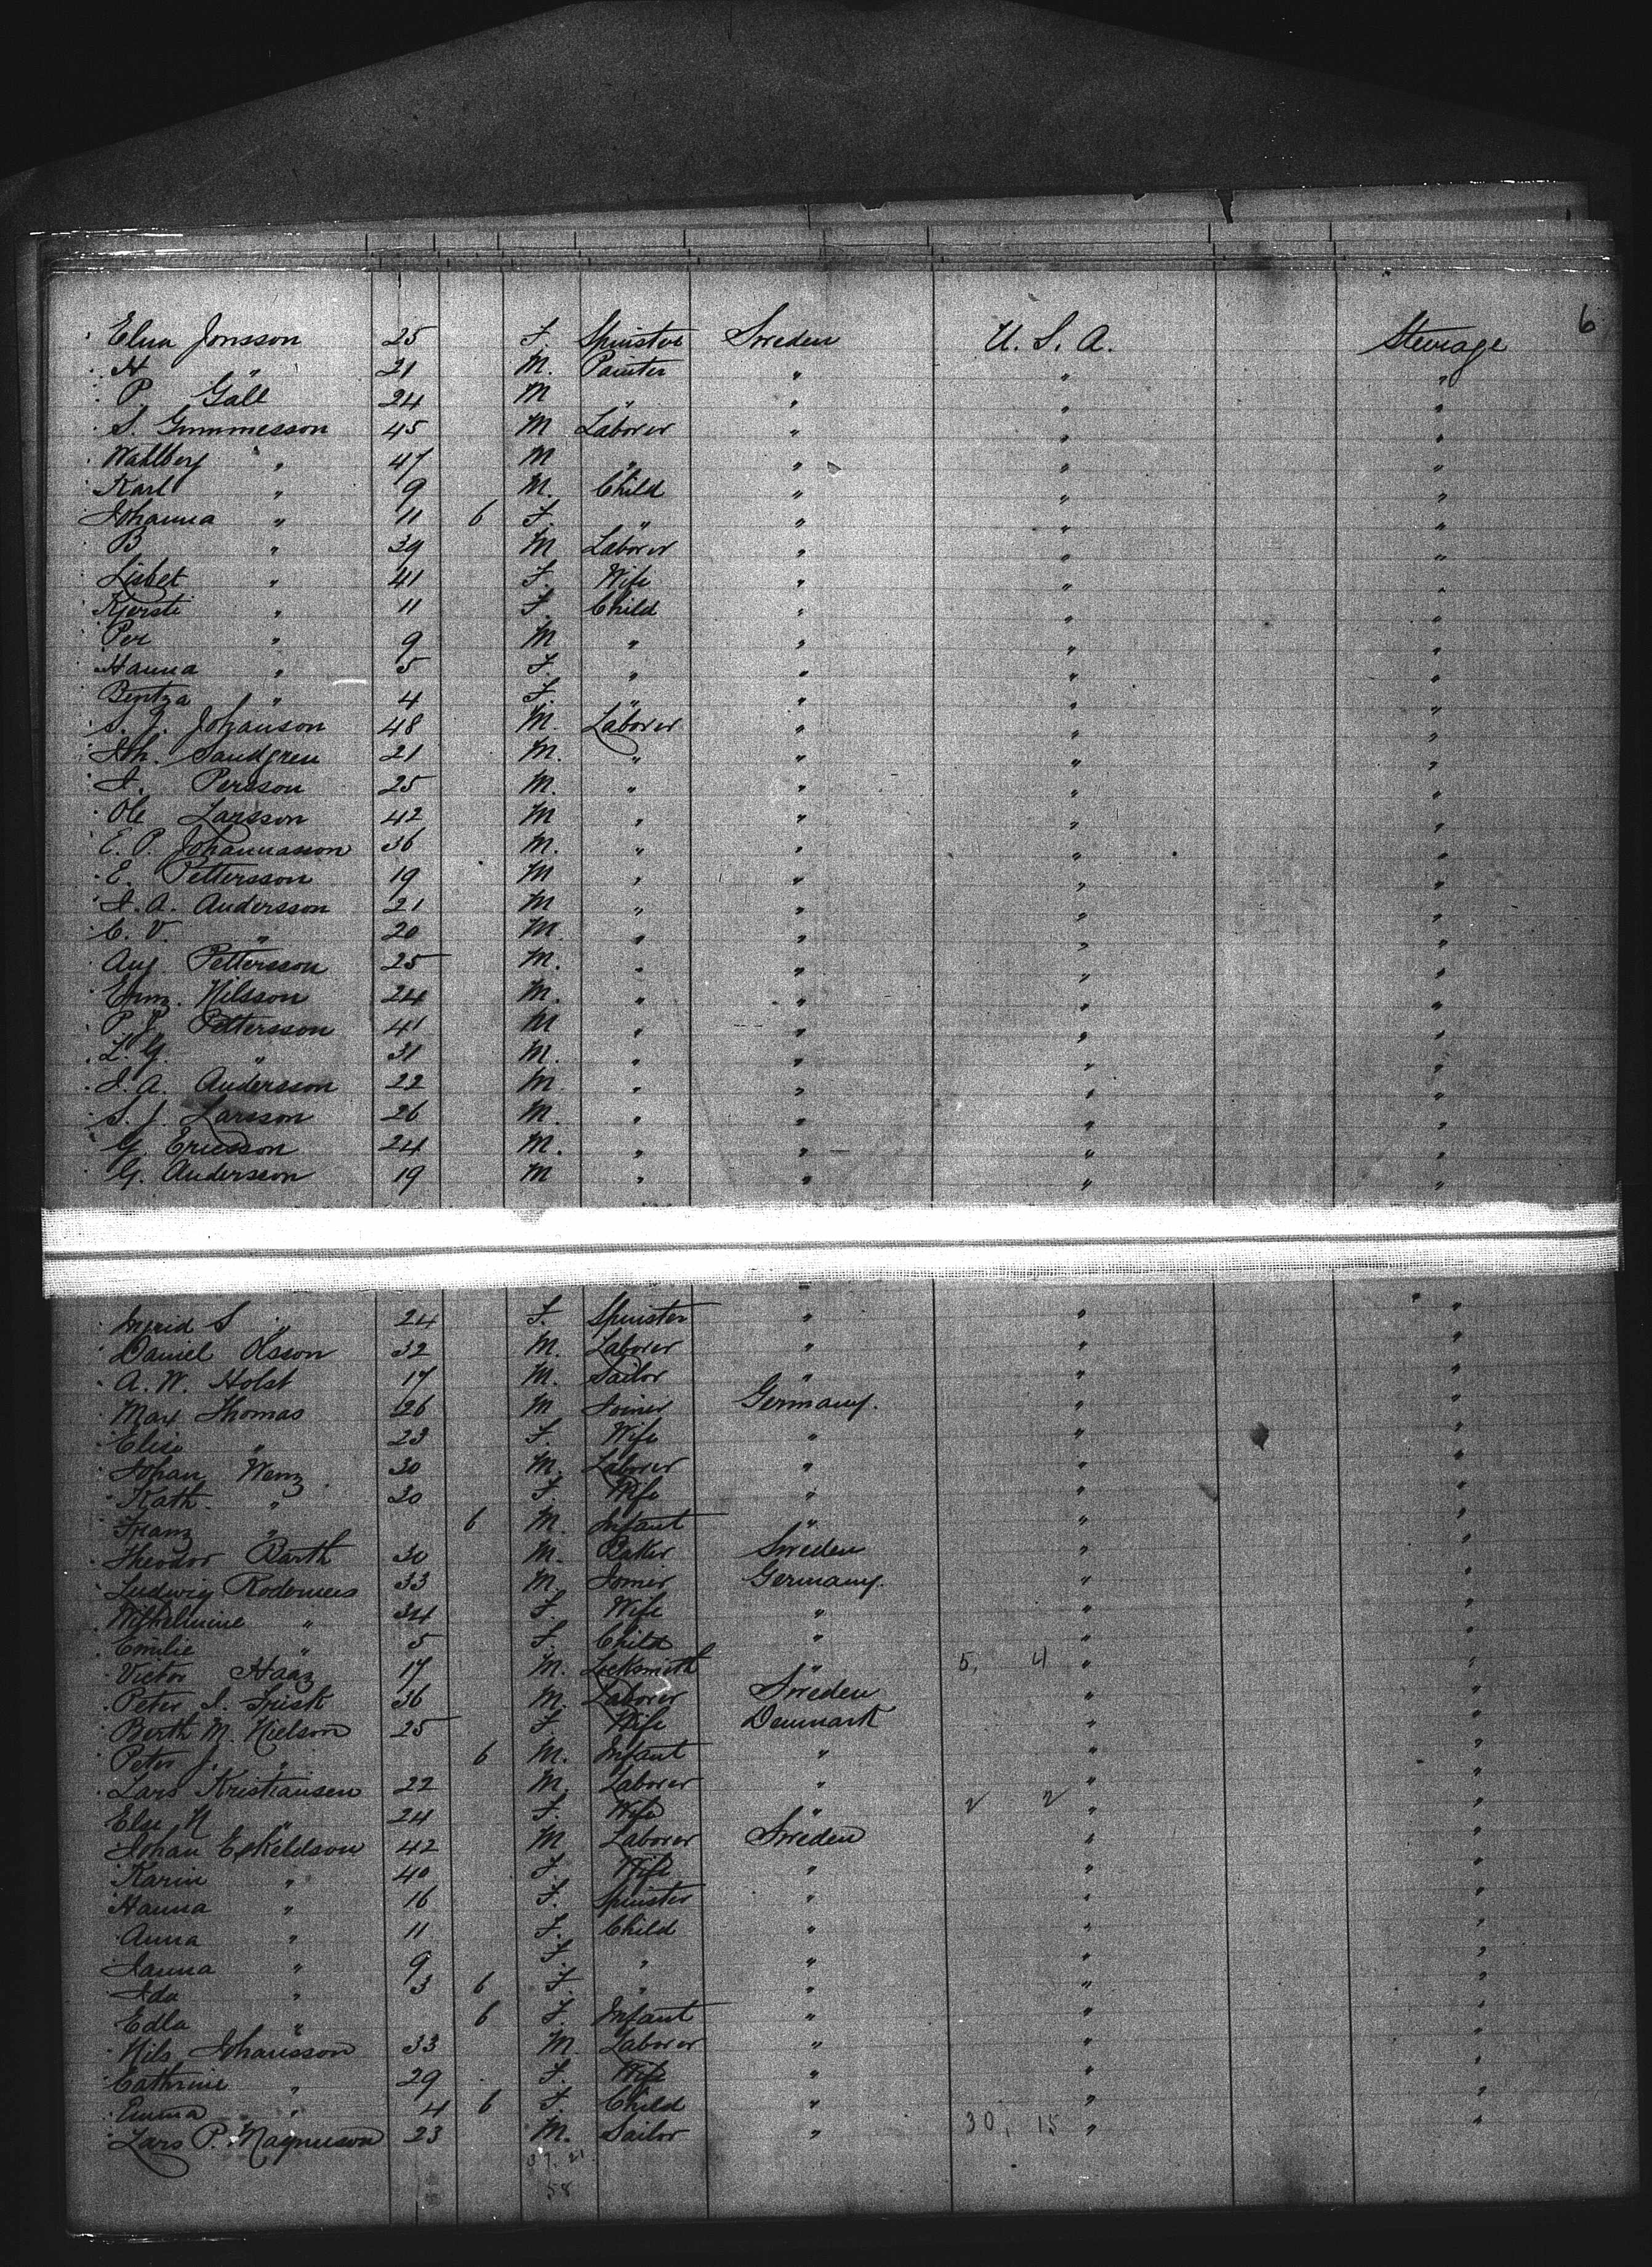 6
Elna Jonsson 25 F. Spinster Sweden U. S. A. Steerage
H " 21 M. Painter " " "
P. Gäll 24 M " " " "
S. Gummesson 45 M Laborer " " "
Wahlberg " 47 M " " " "
Karl " 9 M. Child " " "
Johanna " 11 6 F. " " " "
B " 39 M Laborer " " "
Lisbet " 41 F. Wife " " "
Kjersti " 11 F. Child " " "
Per " 9 M " " " "
Hanna " 5 F. " " " "
Bentza " 4 F. " " " "
S. J. Johanson 48 M. Laborer " " "
Joh. Sandgren 21 M. " " " "
J. Persson 25 M. " " " "
Ole Larsson 42 M " " " "
E. P. Johannasson 36 M. " " " "
E. Pettersson 19 M " " " "
J. A. Andersson 21 M " " " "
C. V. " 20 M. " " " "
Aug Pettersson 25 M. " " " "
Nilsson 24 M. " " " "
P. J. Pettersson 41 M " " " "
L. G. " 31 M. " " " "
J. A. Andersson 22 M. " " " "
S. J. Larsson 26 M. " " " "
G. Ericsson 24 M. " " " "
G. Andersson 19 M " " " "
Ingrid S " 24 F. Spinster " " "
Daniel Olsson 32 M. Laborer " " "
A. W. Holst 17 M. Sailor " " "
Max Thomas 26 M Joiner Germany. " "
Elise " 23 F. Wife " " "
Johan Wenz 30 M. Laborer " " "
Kath. " 30 F. Wife " " "
Franz " 6 M. Infant " " "
Theodor Barth 30 M. Baker Sweden " "
Ludwig 33 M. Joiner Germany. " "
Wilhelmine " 34 F. Wife " " "
Emilie " 5 F. Child " " "
Victor Haaz 17 M. Locksmith " 5, 4 " "
Peter J. Frisk 36 M. Laborer Sweden " "
Berth M. Nielson 25 F. Wife Denmark " "
Peter J. " 6 M. Infant " " "
Lars Kristiansen 22 M. Laborer " " "
Else N " 24 F. Wife " 2 2 " "
Johan Eskeldson 42 M Laborer Sweden " "
Karin " 40 F. Wife " " "
Hanna " 16 F. Spinster " " "
Anna " 11 F. Child " " "
Janna " 9 F. " " " "
Ida " 3 6 F. " " " "
Edla " 6 F. Infant " " "
Nils Johansson 33 M. Laborer " " "
Cathrine " 29 F. Wife " " "
Emma " 4 6 F. Child " " "
Lars P. Magnuson 23 M. Sailor " 30, 15 " "
37. 21.
58